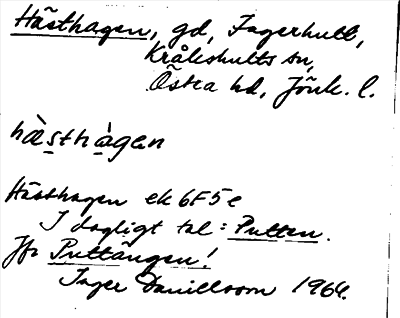 Hästhagen, gd, Fagerhult,
Kråkshults sn,
Östra hd, Jönk. l.
hæ̀sthàgen
Hästhagen ek 6F5e
I dagligt tal: Putten.
Jfr Puttängen!
Inger Danillsson 1964.